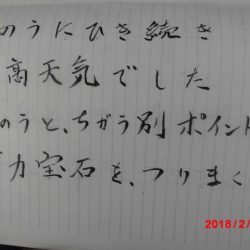 のうにひき続き
高天気でした
のうと、ちがう別ポイント
力宝石を、つりまく
2018/2/